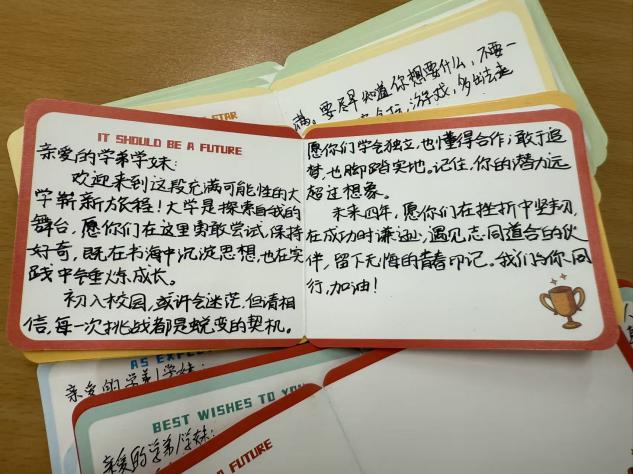 STAR
满。要尽早知道你想要什么，不要一
游戏，多出去走
IT SHOULD BE A FUTURE
亲爱的学弟学妹：
欢迎来到这段充满可能性的大
学崭新旅程！大学是探索自我的
舞台，愿你们在这里勇敢尝试，保持
好奇，既在书海中沉淀思想，也在实
践中锤炼成长。
初入校园，或许会迷茫，但请相
信，每一次挑战都是蜕变的契机。
愿你们学会独立，也懂得合作；敢于追
梦，也脚踏实地。记住，你的潜力远
超过想象。
未来四年，愿你们在挫折中坚韧，
在成功时谦逊，遇见志同道合的伙
伴，留下无悔的青春印记。我们与你同
行，加油！
亲爱的学弟学妹：
BEST WISHES TO YOU
亲爱的学弟学妹：
FUTURE